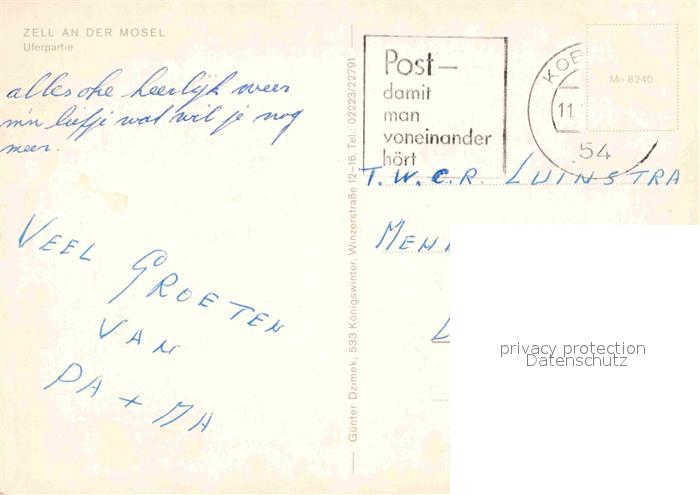 ZELL AN DER MOSEL
Uferpartie
alles oke heerlijk weer
m'n liefje wat wil je nog
meer.
VEEL GROETEN
VAN
PA + MA
Günter Dzimek, 533 Königswinter, Winzerstraße 12-16, Tel.: 02223/22791
Post—
damit
man
voneinander
hört
11.
54
Mo 8240
T.W.C.R. LUINSTRA
privacy protection
Datenschutz